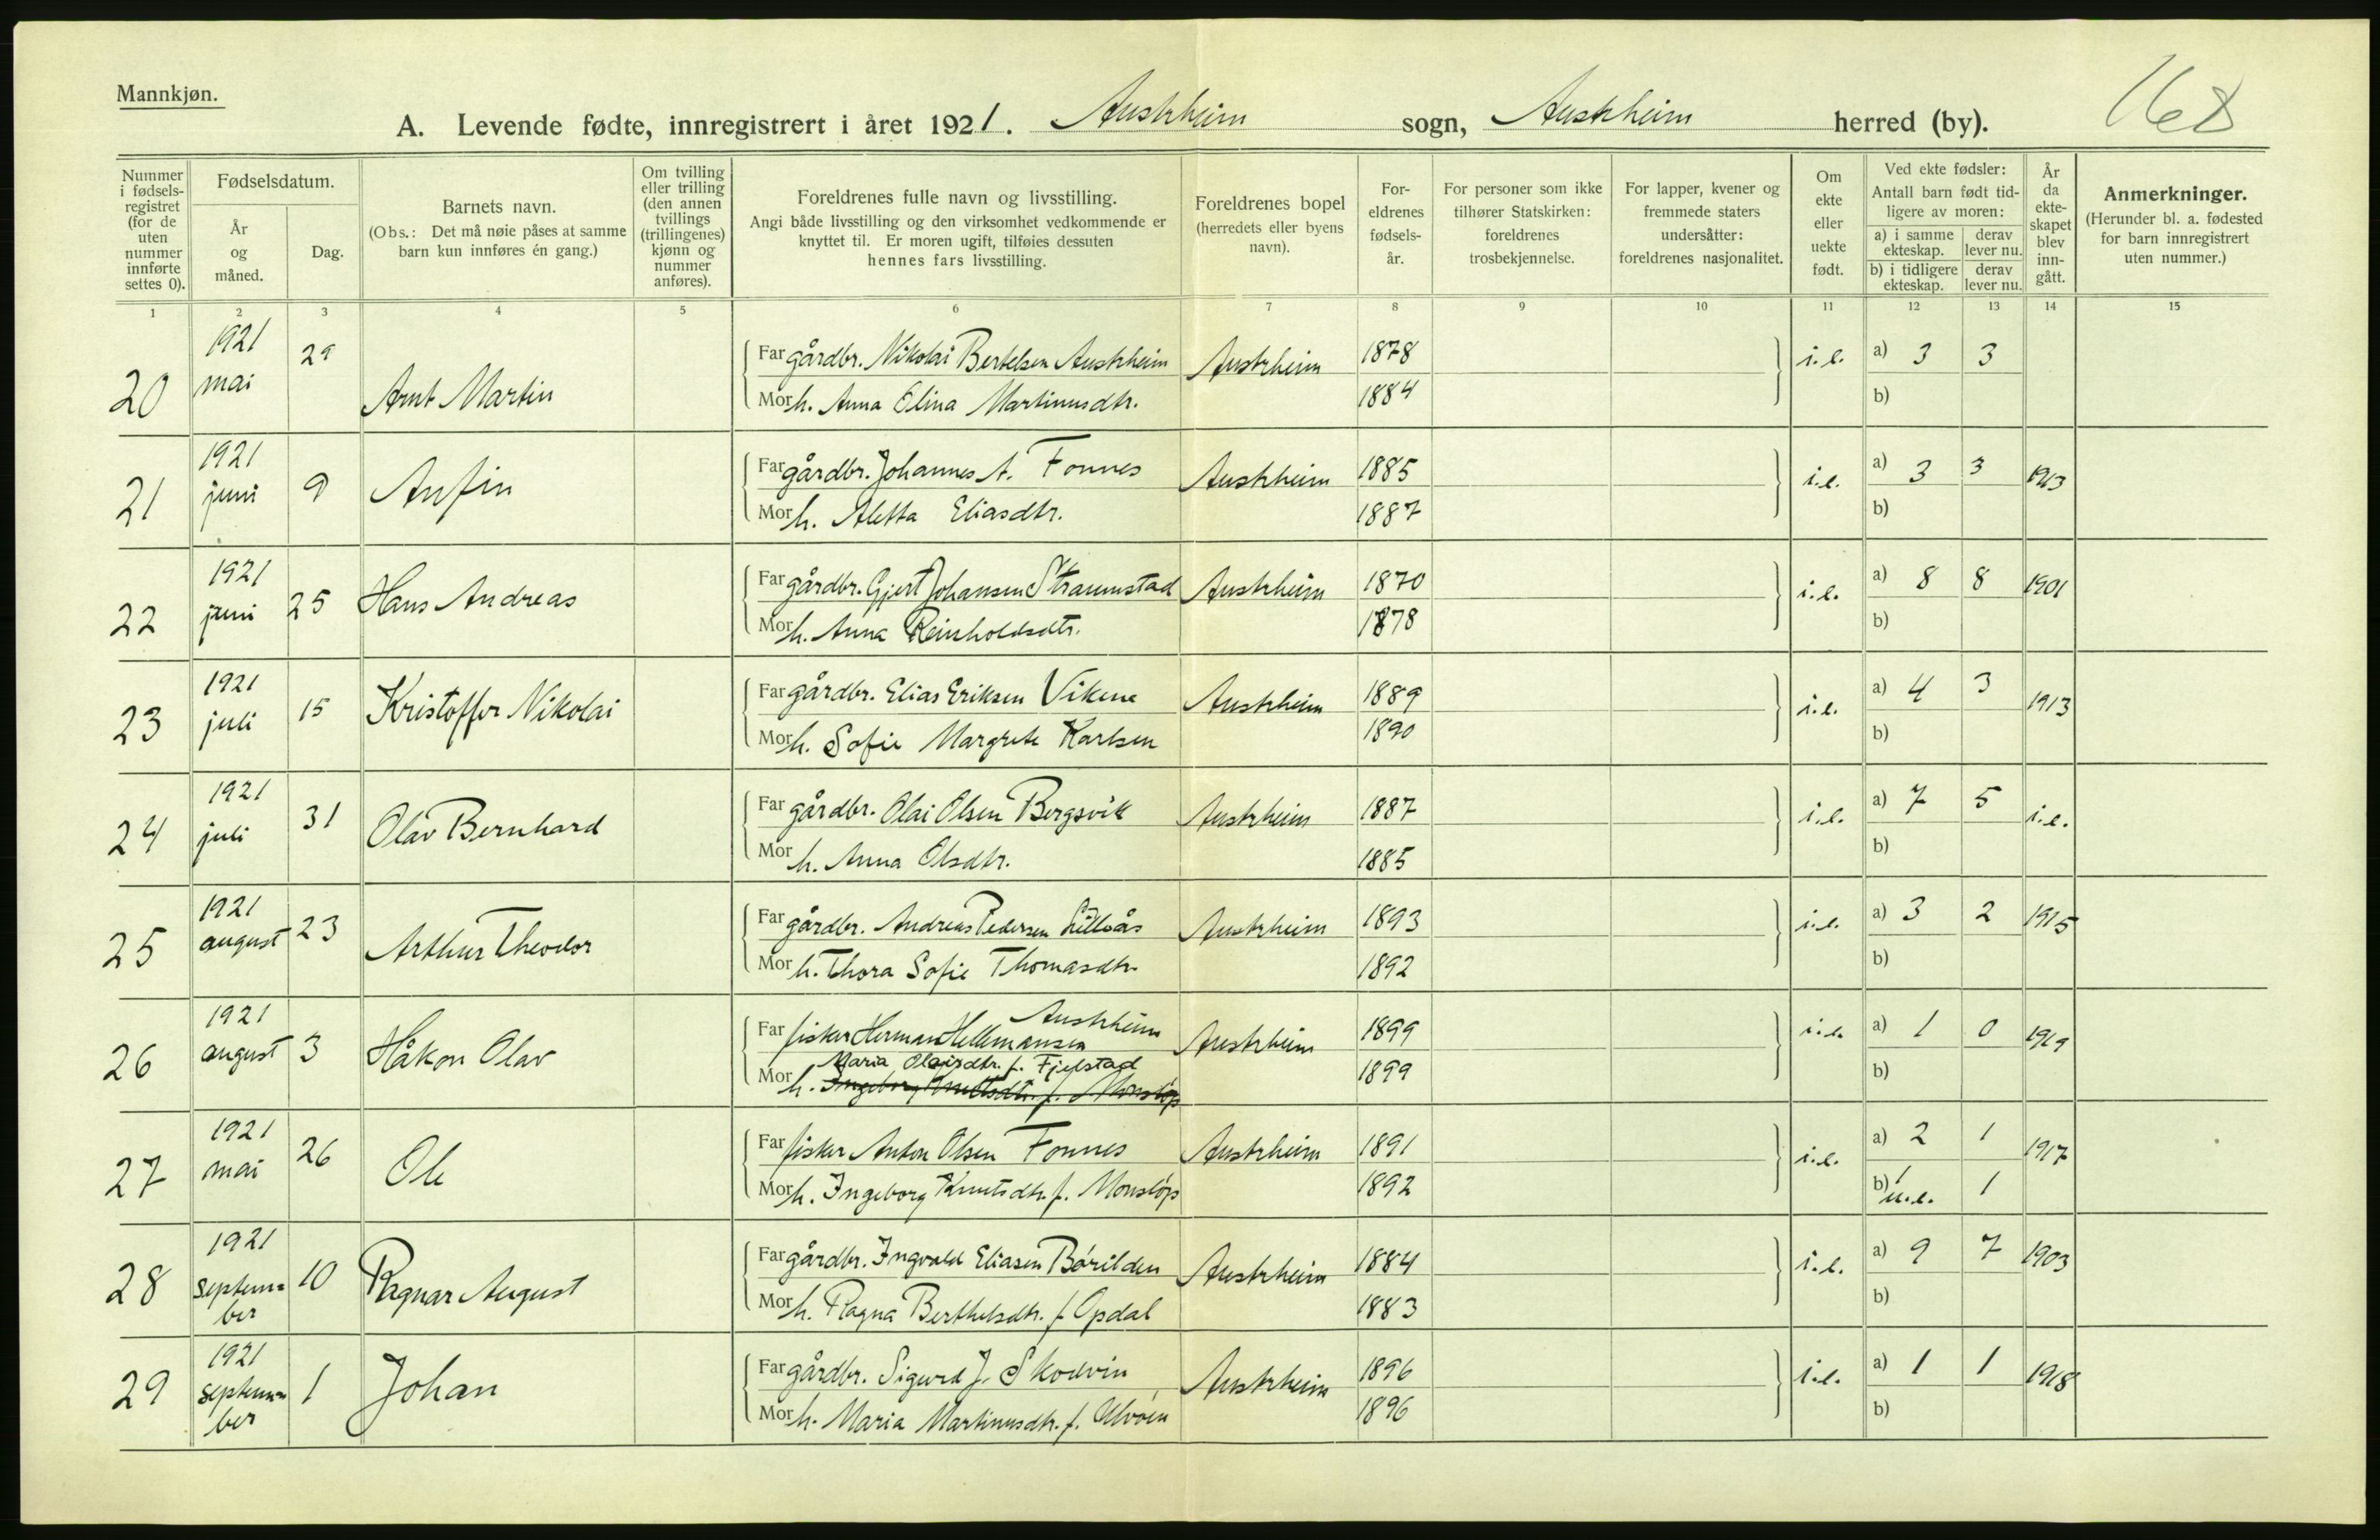 Mannkjøn.
A. Levende fødte, innregistrert i året 1921. Austrheim sogn, Austrheim herred (by). 168
Nummer i fødsels-registret (for de uten nummer innførte settes 0).
Fødselsdatum.
År og måned.
Dag.
Barnets navn.
(Obs.: Det må nøie påses at samme barn kun innføres én gang.)
Om tvilling eller trilling (den annen tvillings (trillingenes) kjønn og nummer anføres).
Foreldrenes fulle navn og livsstilling.
Angi både livsstilling og den virksomhet vedkommende er knyttet til. Er moren ugift, tilføies dessuten hennes fars livsstilling.
Foreldrenes bopel (herredets eller byens navn).
For-eldrenes fødsels-år.
For personer som ikke tilhører Statskirken: foreldrenes trosbekjennelse.
For lapper, kvener og fremmede staters undersåtter: foreldrenes nasjonalitet.
Om ekte eller uekte født.
Ved ekte fødsler:
Antall barn født tid-ligere av moren:
a) i samme ekteskap. derav lever nu.
b) i tidligere ekteskap. derav lever nu.
År da ekte-skapet blev inn-gått.
Anmerkninger.
(Herunder bl. a. fødested for barn innregistrert uten nummer.)
1 2 3 4 5 6 7 8 9 10 11 12 13 14 15
20 1921 mai 29 Arnt Martin Far gårdbr. Nikolai Bertelsen Austrheim Austrheim 1878 i.e. a) 3 3
Mor h. Anna Elina Martinusdtr. 1884 b)
21 1921 juni 9 Anfin Far gårdbr. Johannes A. Fonnes Austrheim 1885 i.e. a) 3 3 1913
Mor h. Aletta Eliasdtr. 1887 b)
22 1921 juni 25 Hans Andreas Far gårdbr. Gjert Johansen Straumstad Austrheim 1870 i.e. a) 8 8 1901
Mor h. Anna Reinholdsdtr. 1878 b)
23 1921 juli 15 Kristoffer Nikolai Far gårdbr. Elias Eriksen Vikene Austrheim 1889 i.e. a) 4 3 1913
Mor h. Sofie Margrete Karlsen 1890 b)
24 1921 juli 31 Olav Bernhard Far gårdbr. Olai Olsen Bergsvik Austrheim 1887 i.e. a) 7 5 i.e.
Mor h. Anna Olsdtr. 1885 b)
25 1921 august 23 Arthur Theodor Far gårdbr. Andreas Pedersen Lillaås Austrheim 1893 i.e. a) 3 2 1915
Mor h. Thora Sofie Thomasdtr. 1892 b)
26 1921 august 3 Håkon Olav Far fisker Herman Hellemansen Austrheim Austrheim 1899 i.e. a) 1 0 1919
Maria Olaisdtr. f. Fjelstad
Mor h. Ingeborg Knutsdtr. f. Monsløp 1899 b)
27 1921 mai 26 Ole Far fisker Anton Olsen Fonnes Austrheim 1891 i.e. a) 2 1 1917
Mor h. Ingeborg Knutsdtr. f. Monsløp 1892 b) 1 u.e. 1
28 1921 september 10 Ragnar August Far gårdbr. Ingvald Eliasen Børilden Austrheim 1884 i.e. a) 9 7 1903
Mor h. Ragna Berthelsdtr. f. Opdal 1883 b)
29 1921 september 1 Johan Far gårdbr. Sigurd J. Skodvin Austrheim 1896 i.e. a) 1 1 1918
Mor h. Maria Martinusdtr. f. Ulvøen 1896 b)